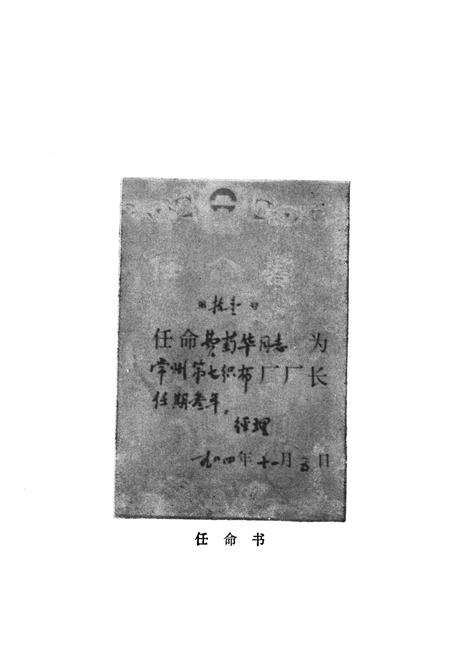 任命书
任命费荫华同志 为
常州第七织布厂厂长
任期叁年。
经理
一九八四年十一月 日
任命书